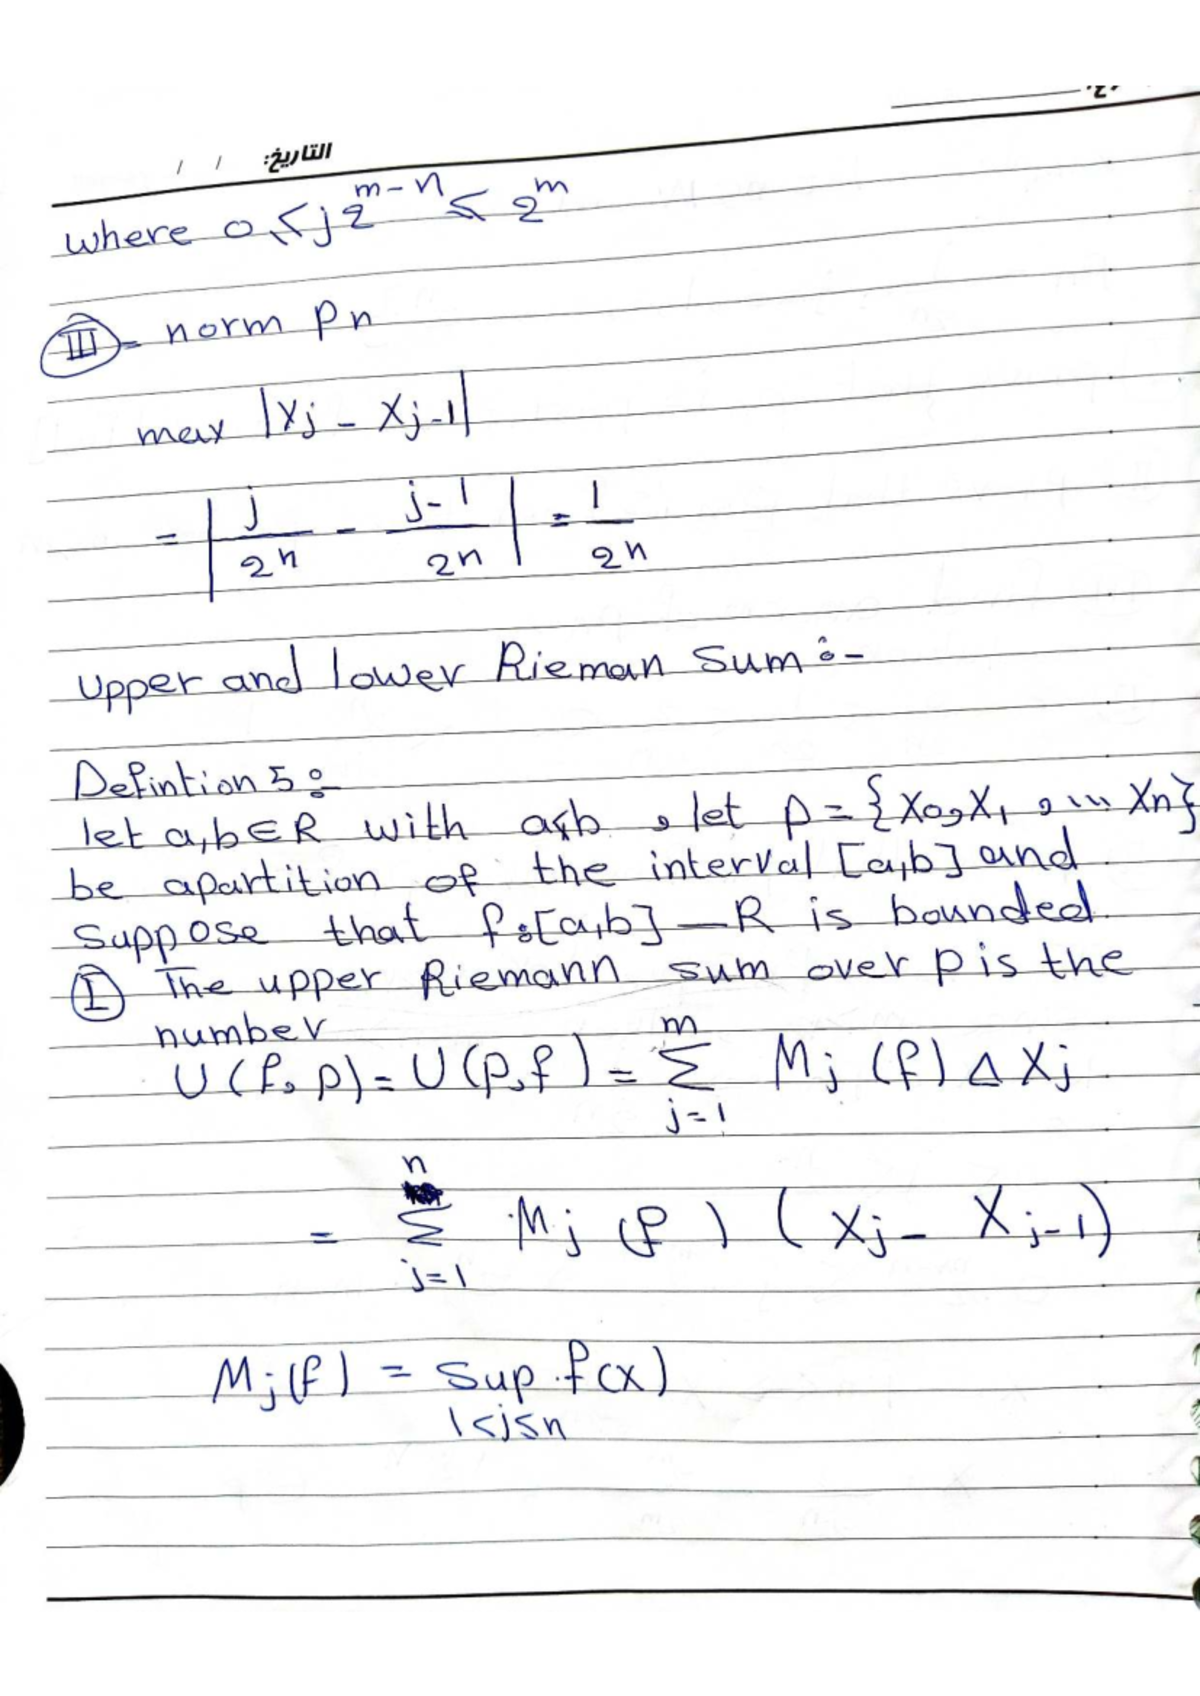 التاريخ: / /
where 0 ≤ j2^{m-n} ≤ 2^m
III = norm Pn
max |Xj - Xj-1|
= | j/2^n - j-1/2^n | = 1/2^n
upper and lower Rieman Sum :-
Defintion 5 :-
let a,b ∈ R with a<b , let p = {X0, X1, ... Xn}
be apartition of the interval [a,b] and
Suppose that f:[a,b] — R is bounded
I The upper Riemann sum over p is the
number
U(f, p) = U(p,f) = Σ_{j=1}^{m} Mj (f) Δ Xj
= Σ_{j=1}^{n} Mj (f) (Xj - Xj-1)
Mj(f) = Sup f(x)
1<j≤n